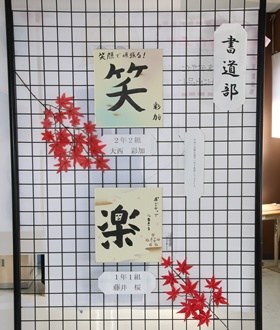 書道部
笑顔で頑張る!
笑
彩加
2年2組
大西 彩加
楽
1年1組
藤井 桜